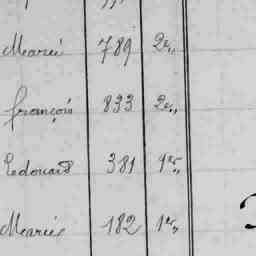 Marié 789 2e,,
françois 833 2e,,
Edouard 381 1er,,
Marie 182 1er,,